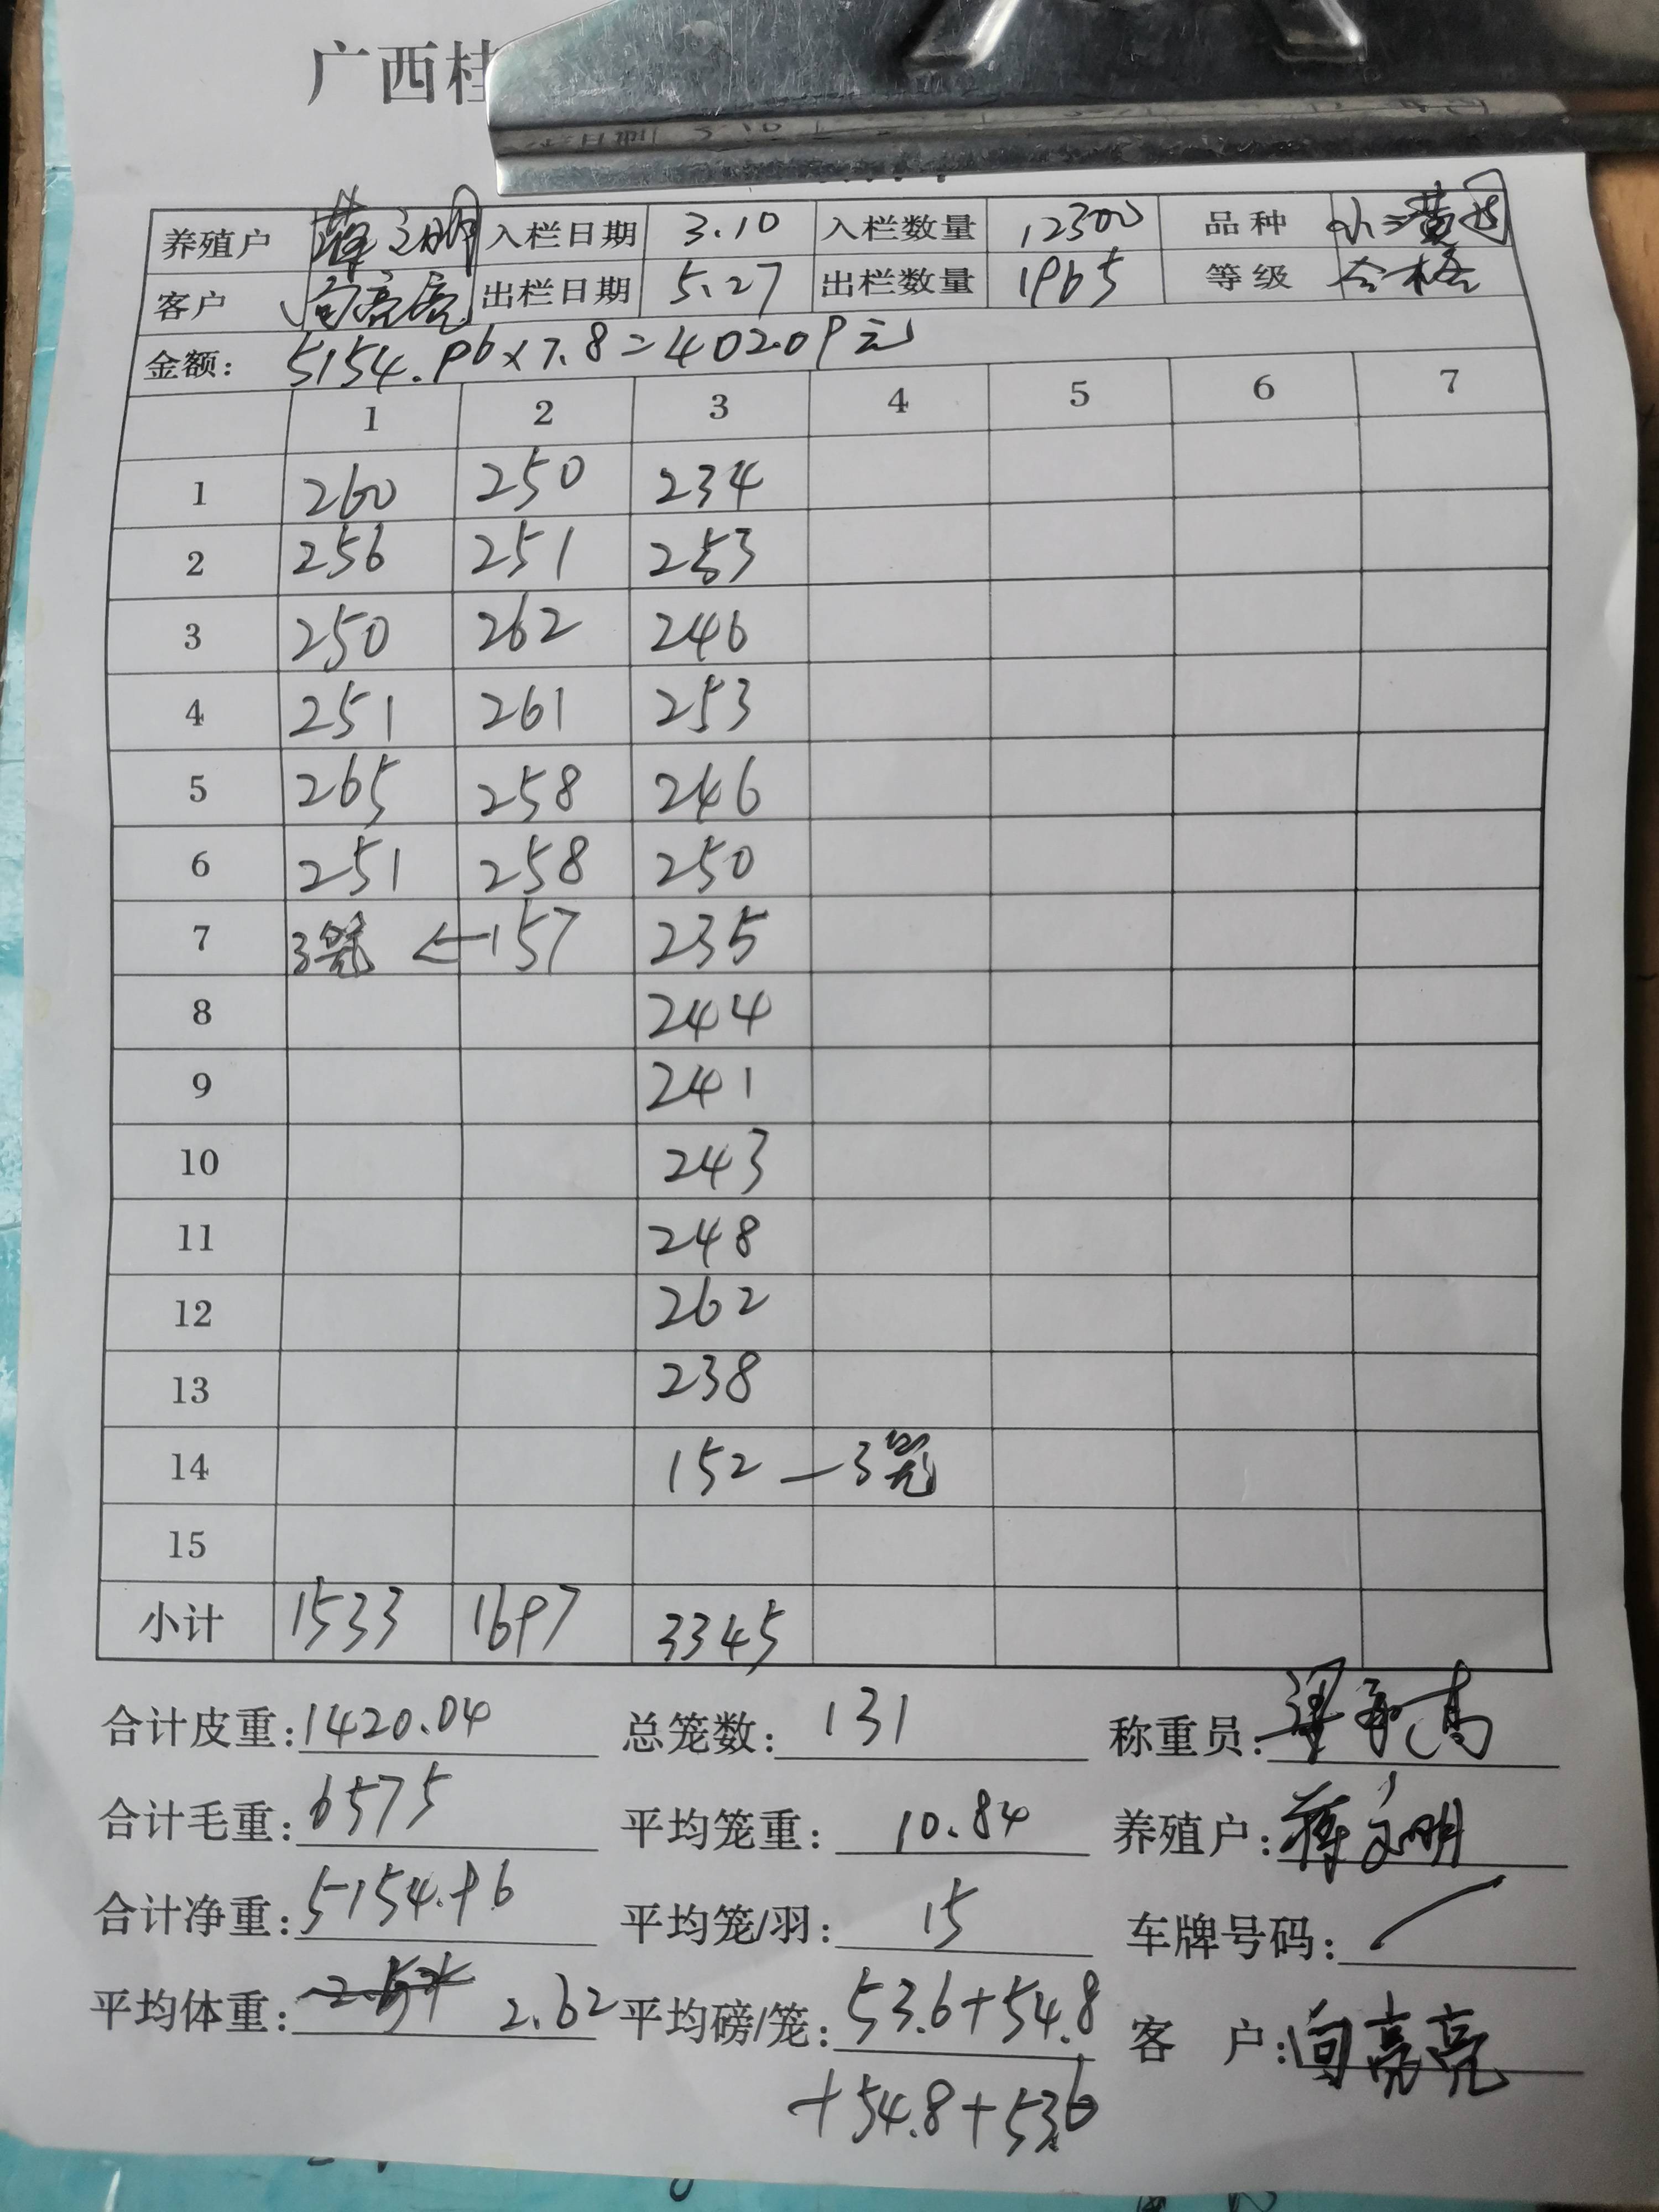 广西桂
养殖户 蒋文明 入栏日期 3.10 入栏数量 12300 品种
客户 向亮亮 出栏日期 5.27 出栏数量 1965 等级 合格
金额: 5154.96×7.8=40209元
1 2 3 4 5 6 7
1 260 250 234
2 256 251 253
3 250 262 246
4 251 261 253
5 265 258 246
6 251 258 250
7 3笼 ← 157 235
8 244
9 241
10 243
11 248
12 262
13 238
14 152 — 3笼
15
小计 1533 1697 3345
合计皮重: 1420.04 总笼数: 131 称重员:
合计毛重: 6575 平均笼重: 10.84 养殖户: 蒋文明
合计净重: 5154.96 平均笼/羽: 15 车牌号码: /
平均体重: 2.62 平均磅/笼: 53.6+54.8 客 户: 向亮亮
+54.8+53.6